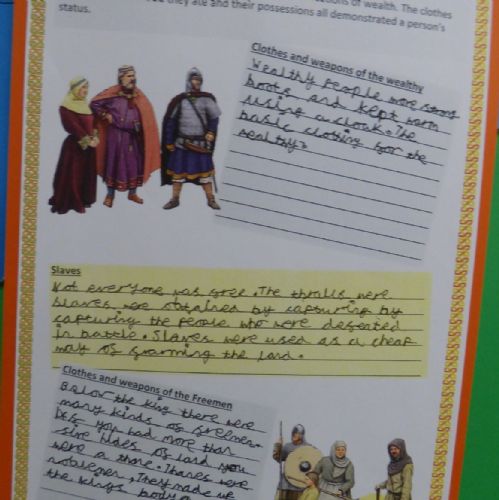 ions of wealth. The clothes
they ate and their possessions all demonstrated a person's
status.
Clothes and weapons of the wealthy
Wealthy people wore
boots and kept warm
using a cloak. The
basic clothing for the
wealthy.
Slaves
Not everyone was free. The thralls were
slaves were obtained by capturing by
capturing the people who were defeated
in battle. Slaves were used as a cheap
way of farming the land.
Clothes and weapons of the Freemen
Below the king there were
many kinds of freemen.
If you had more than
five hides of land you
were a thane. Thanes were
noblemen, They made up
the kings body